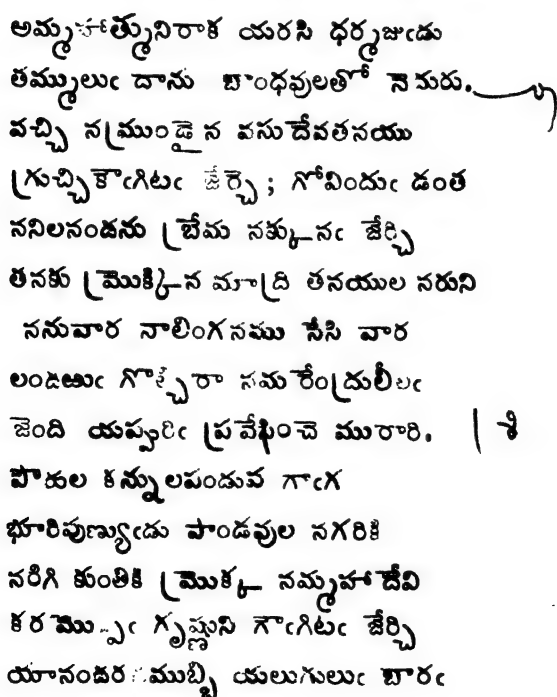 అమ్మహాత్మునిరాక యరసి ధర్మజుఁడు
తమ్ములుఁ దాను బాంధవులతో నెదురు.
వచ్చి నమ్రుండైన వసుదేవతనయు
గ్రుచ్చికౌఁగిటఁ జేర్చె; గోవిందుఁ డంత
ననిలనందను బ్రేమ నక్కునఁ జేర్చి
తనకు మ్రొక్కిన మాద్రి తనయుల నరుని
ననువార నాలింగనము సేసి వార
లందఱుఁ గొల్చిరా నమరేంద్రులీలఁ
జెంది యప్పురిఁ బ్రవేశించె మురారి.
పౌరుల కన్నులపండువ గాఁగ
భూరిపుణ్యుఁడు పాండవుల నగరికి
నరిగి కుంతికి మ్రొక్క నమ్మహాదేవి
కరమొప్పఁ గృష్ణుని గౌఁగిటఁ జేర్చి
యానందరసముబ్బి యలుగులుఁ బారఁ